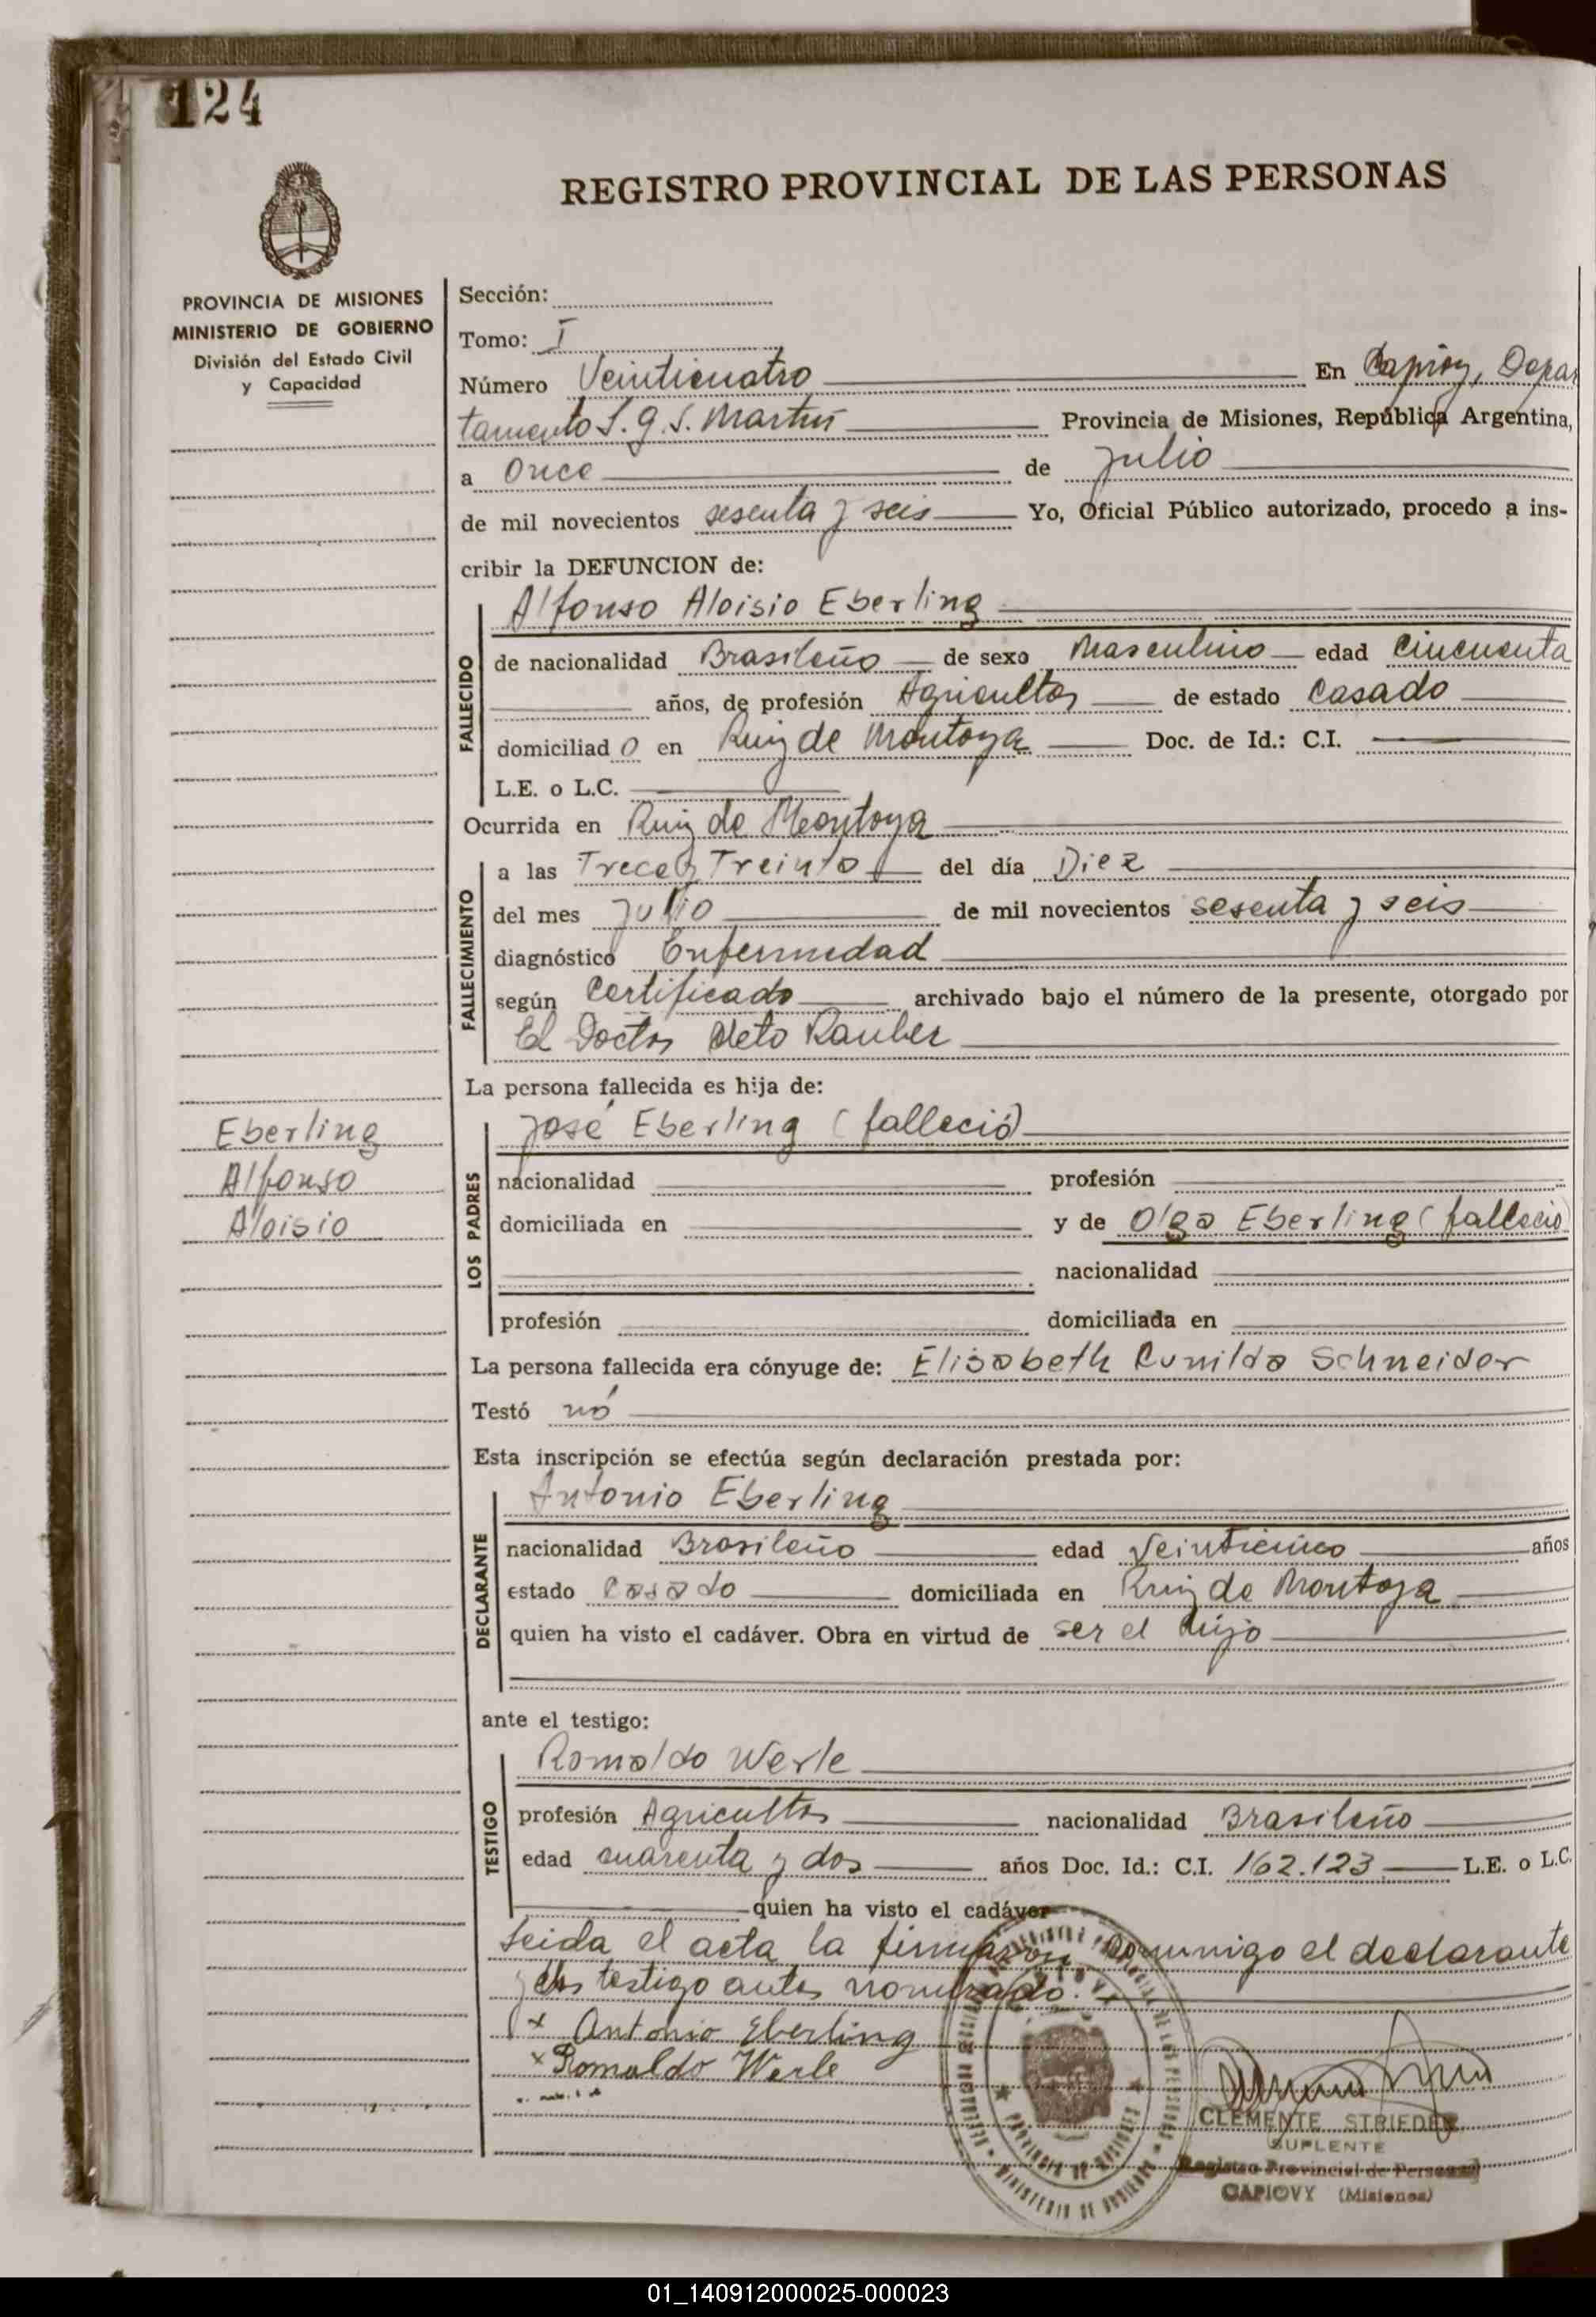 124
REGISTRO PROVINCIAL DE LAS PERSONAS
PROVINCIA DE MISIONES
MINISTERIO DE GOBIERNO
División del Estado Civil
y Capacidad
Sección:
Tomo: I
Número Veinticuatro En Capioy, Depar
tamento L. g. S. Martín Provincia de Misiones, República Argentina,
a Once de Julio
de mil novecientos sesenta y seis Yo, Oficial Público autorizado, procedo a ins-
cribir la DEFUNCION de:
Alfonso Aloisio Eberling
FALLECIDO
de nacionalidad Brasileño de sexo Masculino edad Cincuenta
años, de profesión Agricultor de estado Casado
domiciliado en Ruiz de Montoya Doc. de Id.: C.I.
L.E. o L.C.
Ocurrida en Ruiz de Montoya
FALLECIMIENTO
a las Trece y Treinta del día Diez
del mes Julio de mil novecientos sesenta y seis
diagnóstico Enfermedad
según Certificado archivado bajo el número de la presente, otorgado por
El Doctor Neto Rauber
La persona fallecida es hija de:
José Eberling (falleció)
LOS PADRES
nacionalidad profesión
domiciliada en y de Olga Eberling (falleció)
nacionalidad
profesión domiciliada en
La persona fallecida era cónyuge de: Elisabeth Cunilda Schneider
Testó nó
Esta inscripción se efectúa según declaración prestada por:
Antonio Eberling
DECLARANTE
nacionalidad Brasileño edad Veinticinco años
estado Casado domiciliada en Ruiz de Montoya
quien ha visto el cadáver. Obra en virtud de ser el hijo
ante el testigo:
Romaldo Werle
TESTIGO
profesión Agricultor nacionalidad Brasileño
edad cuarenta y dos años Doc. Id.: C.I. 162.123 L.E. o L.C.
quien ha visto el cadáver
Leida el acta la firmaron conmigo el declarante
y el testigo antes nombrado.
x Antonio Eberling
x Romaldo Werle
CLEMENTE STRIEDER
SUPLENTE
Registro Provincial de Personas
CAPIOVY (Misiones)
Eberling
Alfonso
Aloisio
PROVINCIA DE MISIONES
MINISTERIO DE GOBIERNO
01_140912000025-000023